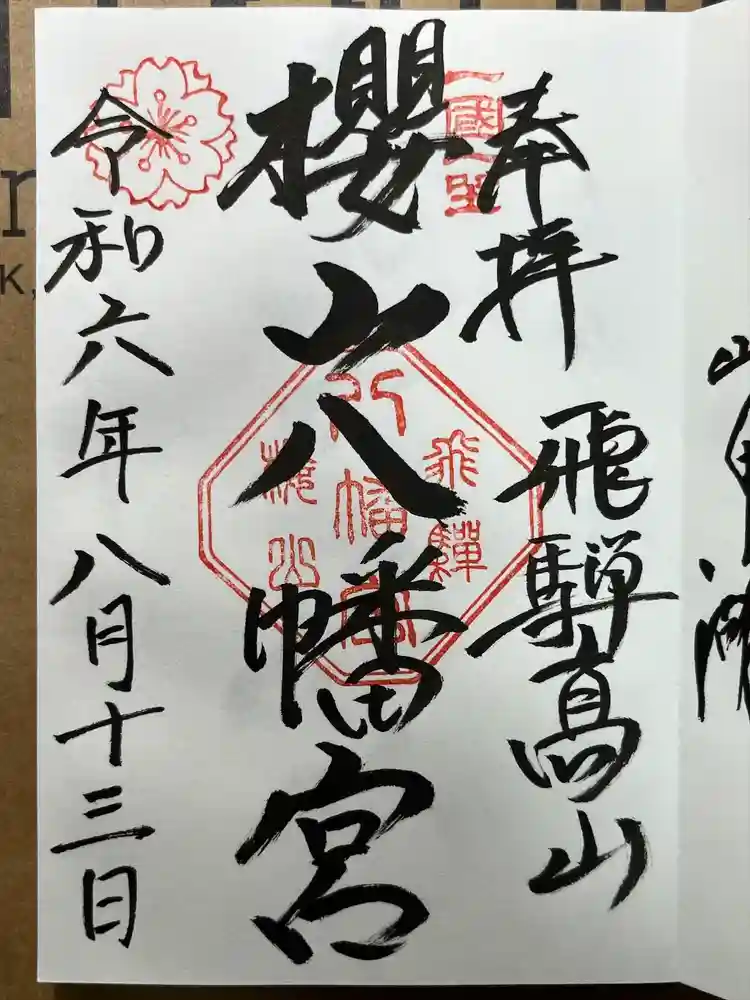 奉拝
飛騨高山
櫻山八幡宮
令和六年八月十三日
一國一社
飛驒
八幡宮
櫻山